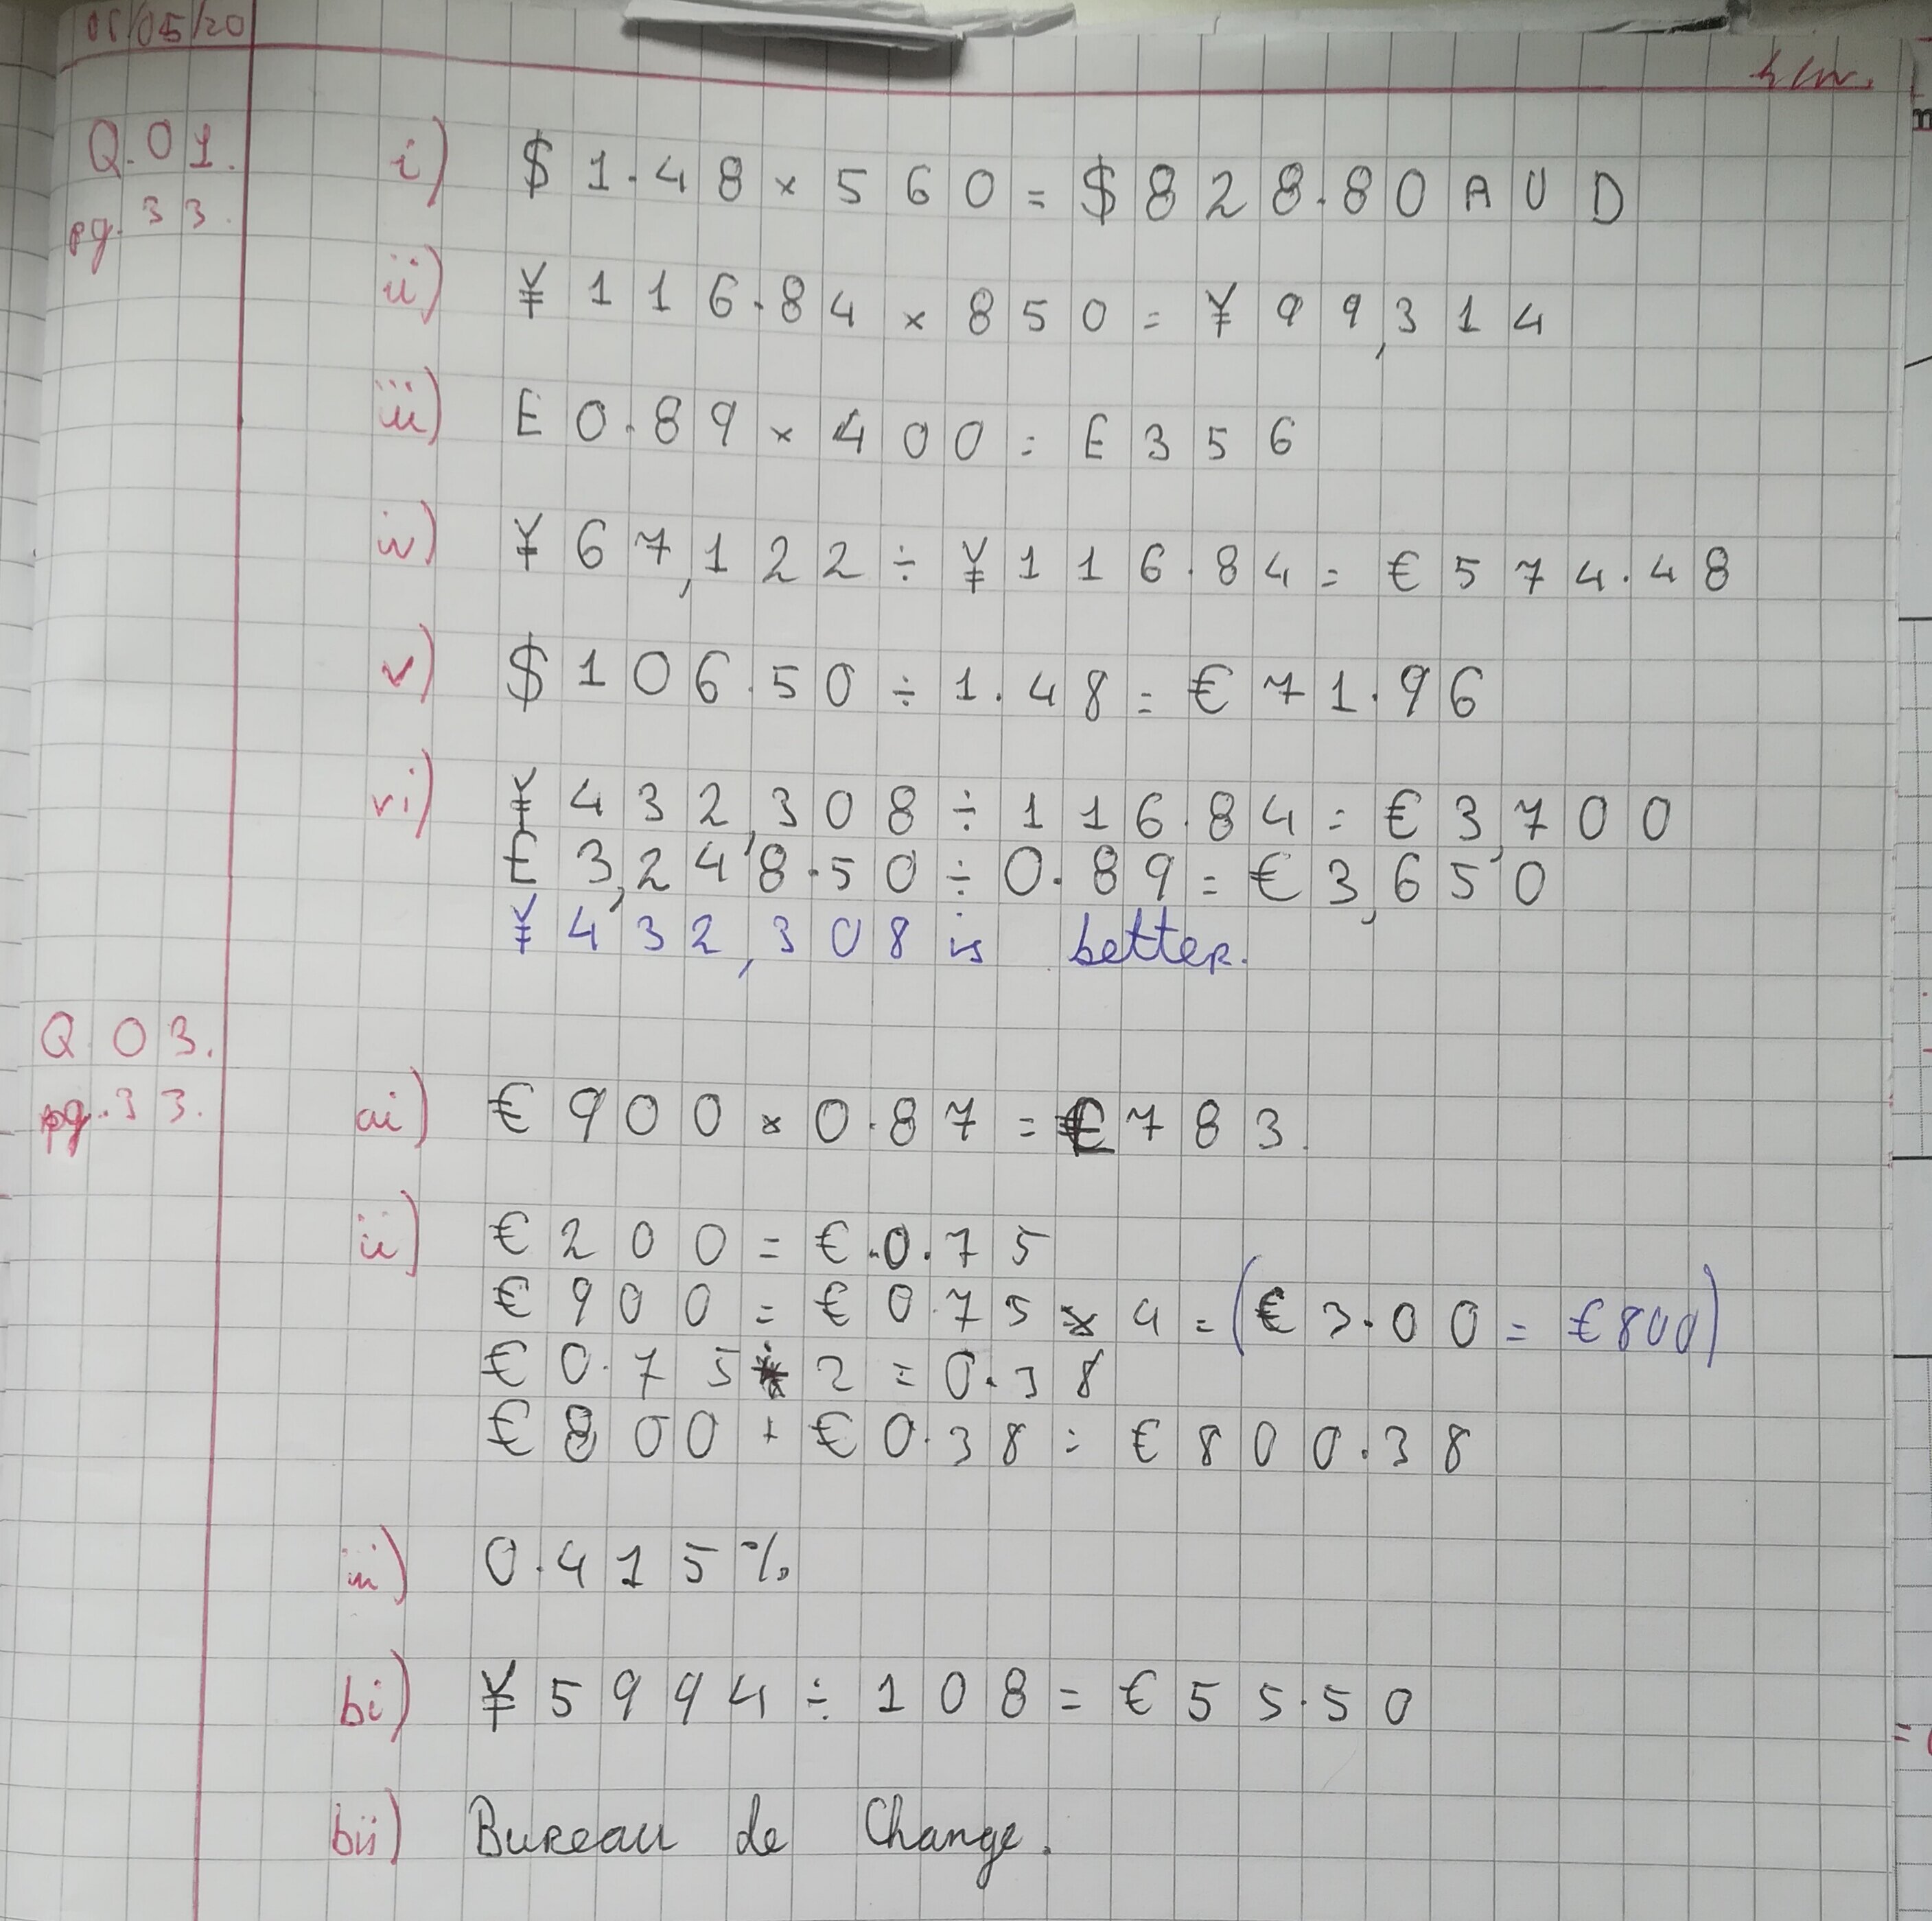 05/05/20
h/w.
Q.01. i) $1.48 × 560 = $828.80 AUD
pg.33.
ii) ¥116.84 × 850 = ¥99,314
iii) £0.89 × 400 = £356
iv) ¥67,122 ÷ ¥116.84 = €574.48
v) $106.50 ÷ 1.48 = €71.96
vi) ¥432,308 ÷ 116.84 = €3,700
£3,248.50 ÷ 0.89 = €3,650
¥432,308 is better.
Q03.
pg.33. ai) €900 × 0.87 = £783.
ii) €200 = €0.75
€900 = €0.75 × 4 = (€3.00 = €800)
€0.75 ÷ 2 = 0.38
€800 + €0.38 = €800.38
iii) 0.415%
bi) ¥5994 ÷ 108 = €55.50
bii) Bureau de Change.